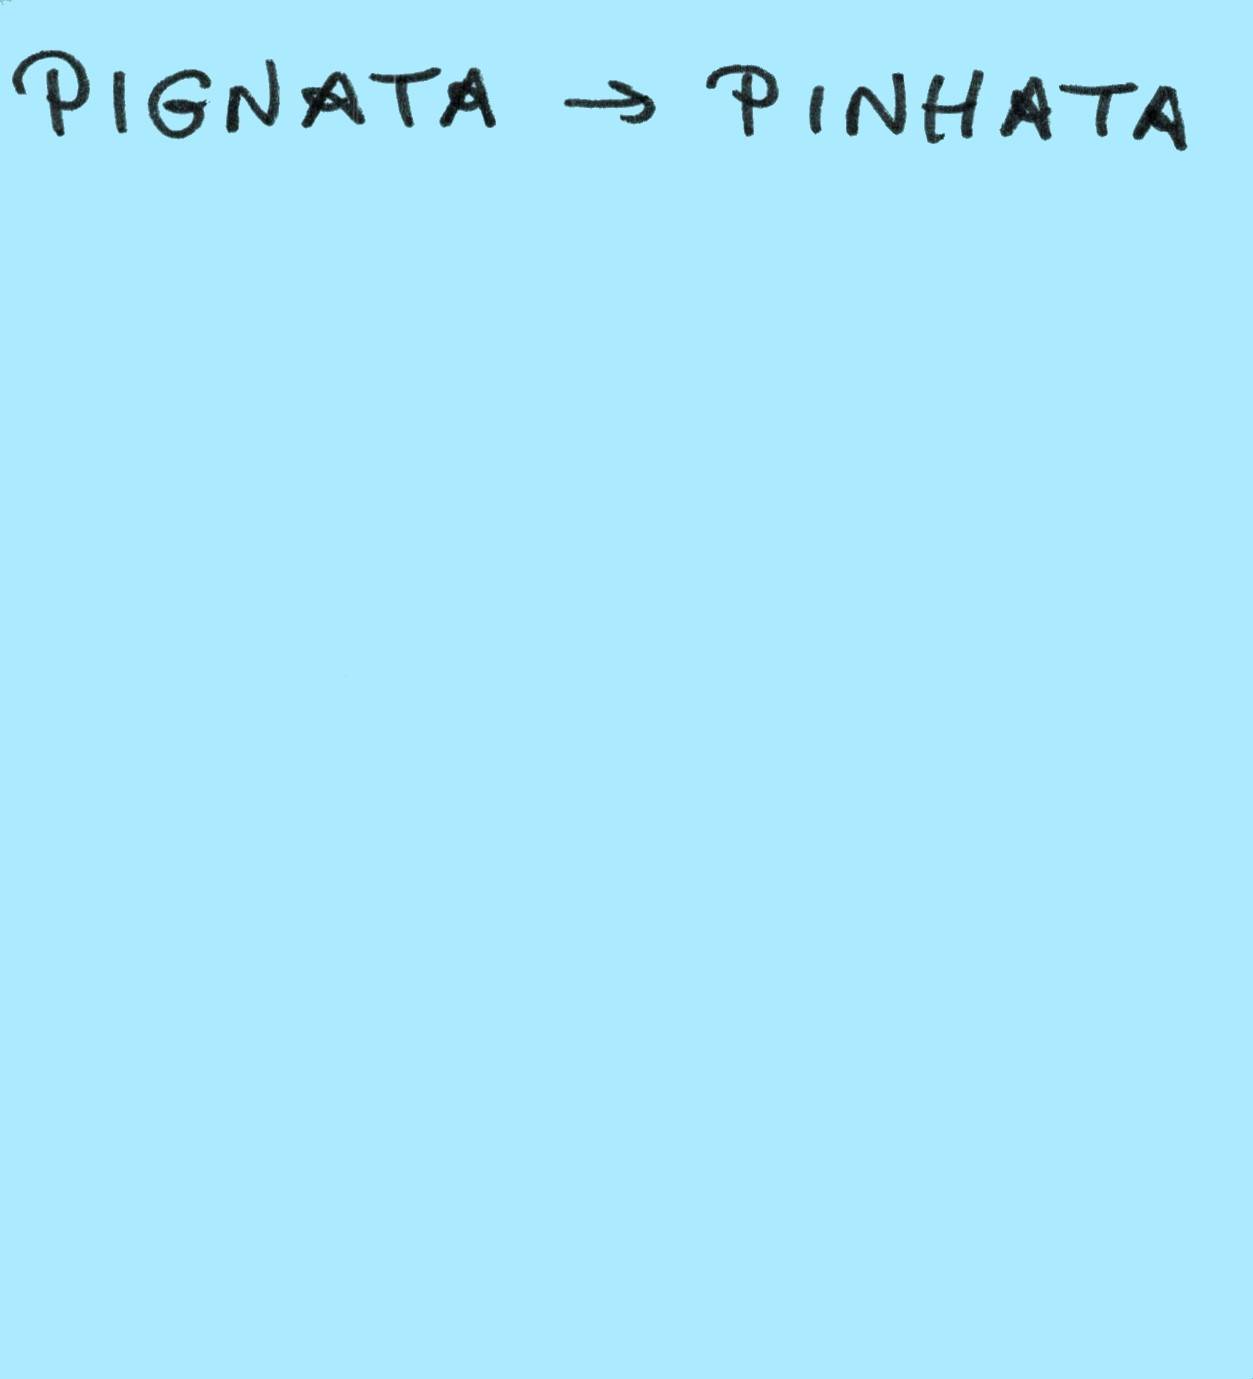 PIGNATA → PINHATA